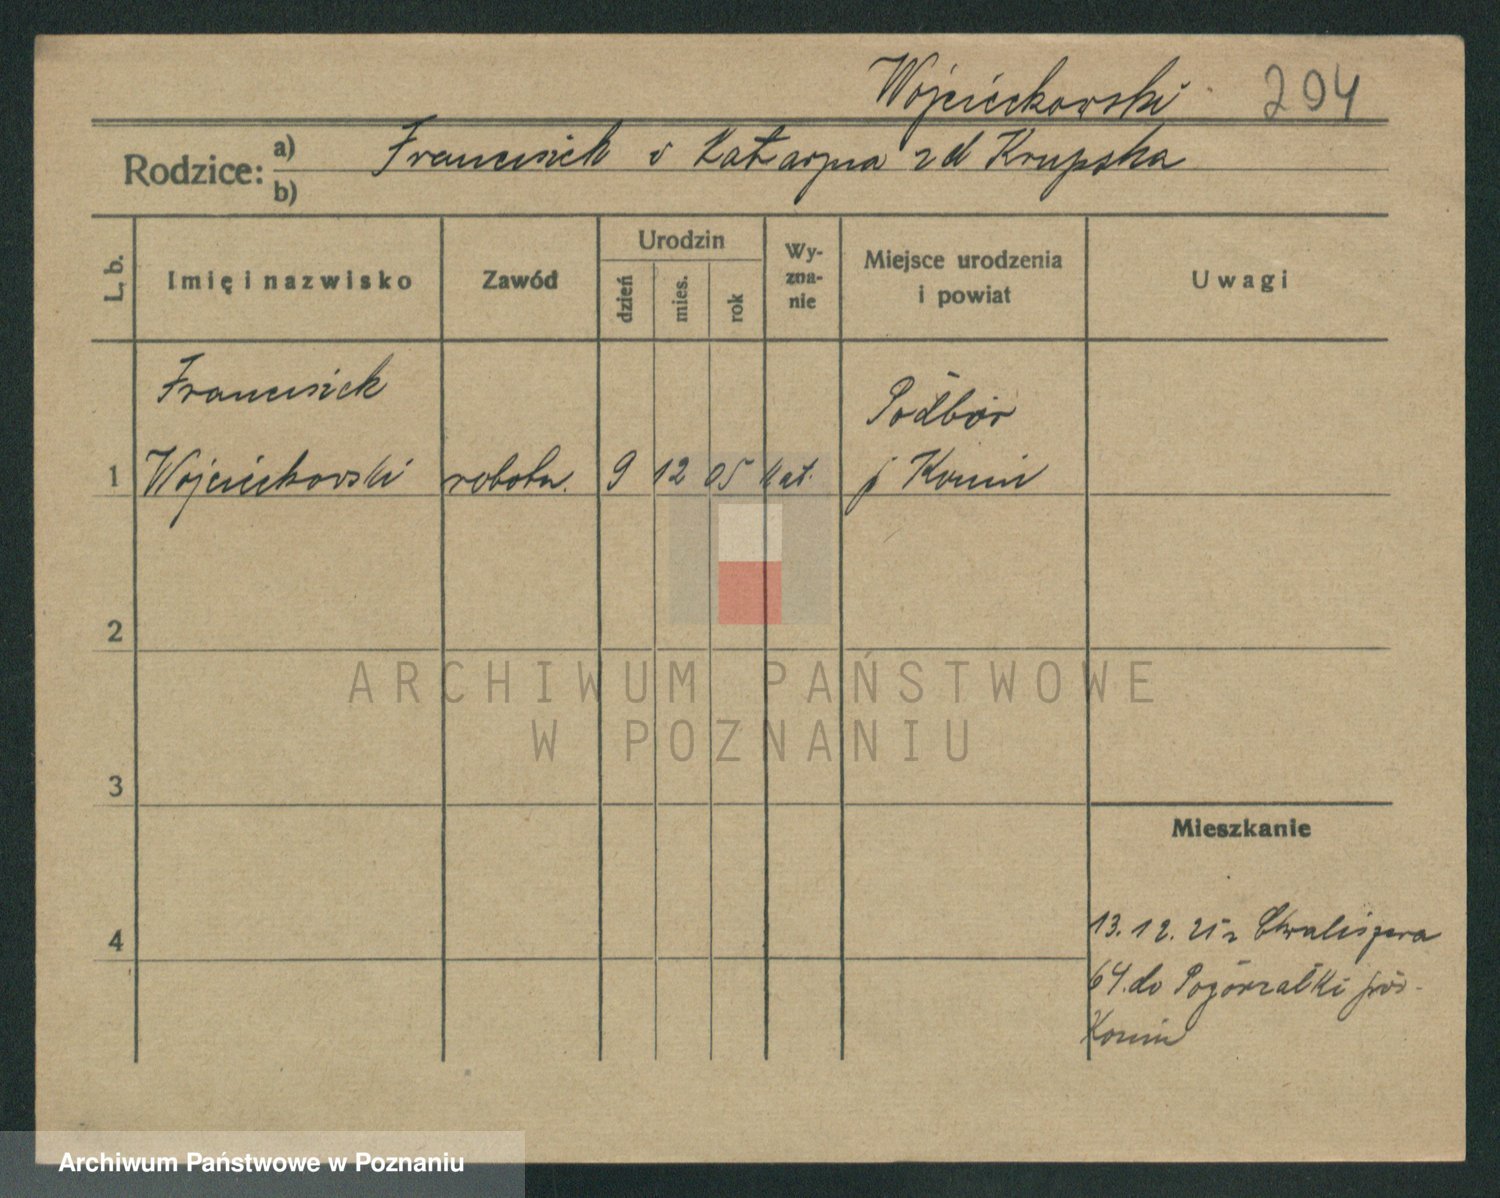 Wojciechowski 204
Rodzice: a) Franciszek i Katarzyna zd Krupska
b)
L. b. Imię i nazwisko Zawód Urodzin dzień mies. rok Wy-zna-nie Miejsce urodzenia i powiat Uwagi
Franciszek Podbór
1 Wojciechowski robotn. 9 12 05 kat. p Konin
2
ARCHIWUM PAŃSTWOWE
W POZNANIU
3
Mieszkanie
4 13. 12. 25 z Chwaliszewa
64. do Pogorzałki pow.
Konin
Archiwum Państwowe w Poznaniu